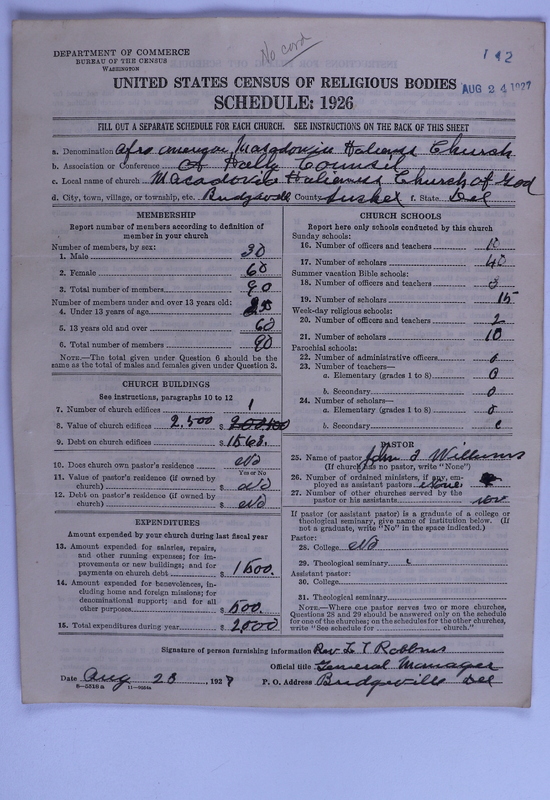 No card
142
DEPARTMENT OF COMMERCE
BUREAU OF THE CENSUS
WASHINGTON
UNITED STATES CENSUS OF RELIGIOUS BODIES
AUG 24 1927
SCHEDULE: 1926
FILL OUT A SEPARATE SCHEDULE FOR EACH CHURCH. SEE INSTRUCTIONS ON THE BACK OF THIS SHEET
a. Denomination Afro Church
b. Association or Conference of Counsil
c. Local name of church Church of God
d. City, town, village, or township, etc. County f. State Del
MEMBERSHIP
Report number of members according to definition of
member in your church
Number of members, by sex:
1. Male 30
2. Female 60
3. Total number of members 90
Number of members under and over 13 years old:
4. Under 13 years of age
5. 13 years old and over 60
6. Total number of members 90
NOTE.—The total given under Question 6 should be the
same as the total of males and females given under Question 3.
CHURCH BUILDINGS
See instructions, paragraphs 10 to 12
7. Number of church edifices 1
8. Value of church edifices 2.500 $
9. Debt on church edifices $ 1568.
10. Does church own pastor's residence No
Yes or No
11. Value of pastor's residence (if owned by
church) $ No
12. Debt on pastor's residence (if owned by
church) $ No
EXPENDITURES
Amount expended by your church during last fiscal year
13. Amount expended for salaries, repairs,
and other running expenses; for im-
provements or new buildings; and for
payments on church debt $ 1500.
14. Amount expended for benevolences, in-
cluding home and foreign missions; for
denominational support; and for all
other purposes $ 500.
15. Total expenditures during year $ 2000
CHURCH SCHOOLS
Report here only schools conducted by this church
Sunday schools:
16. Number of officers and teachers 10
17. Number of scholars 40
Summer vacation Bible schools:
18. Number of officers and teachers
19. Number of scholars 15
Week-day religious schools:
20. Number of officers and teachers 2
21. Number of scholars 10
Parochial schools:
22. Number of administrative officers 0
23. Number of teachers—
a. Elementary (grades 1 to 8) 0
b. Secondary 0
24. Number of scholars—
a. Elementary (grades 1 to 8) 0
b. Secondary
PASTOR
25. Name of pastor John Williams
(If church has no pastor, write "None")
26. Number of ordained ministers, if any, em-
ployed as assistant pastors None
27. Number of other churches served by the
pastor or his assistants
If pastor (or assistant pastor) is a graduate of a college or
theological seminary, give name of institution below. (If
not a graduate, write "No" in the space indicated.)
Pastor:
28. College No
29. Theological seminary
Assistant pastor:
30. College
31. Theological seminary
NOTE.—Where one pastor serves two or more churches,
Questions 28 and 29 should be answered only on the schedule
for one of the churches; on the schedules for the other churches,
write "See schedule for church."
Signature of person furnishing information Rev Robbins
Official title General Manager
Date Aug 23, 1927
P. O. Address Bridgeville Del
8—5318 a